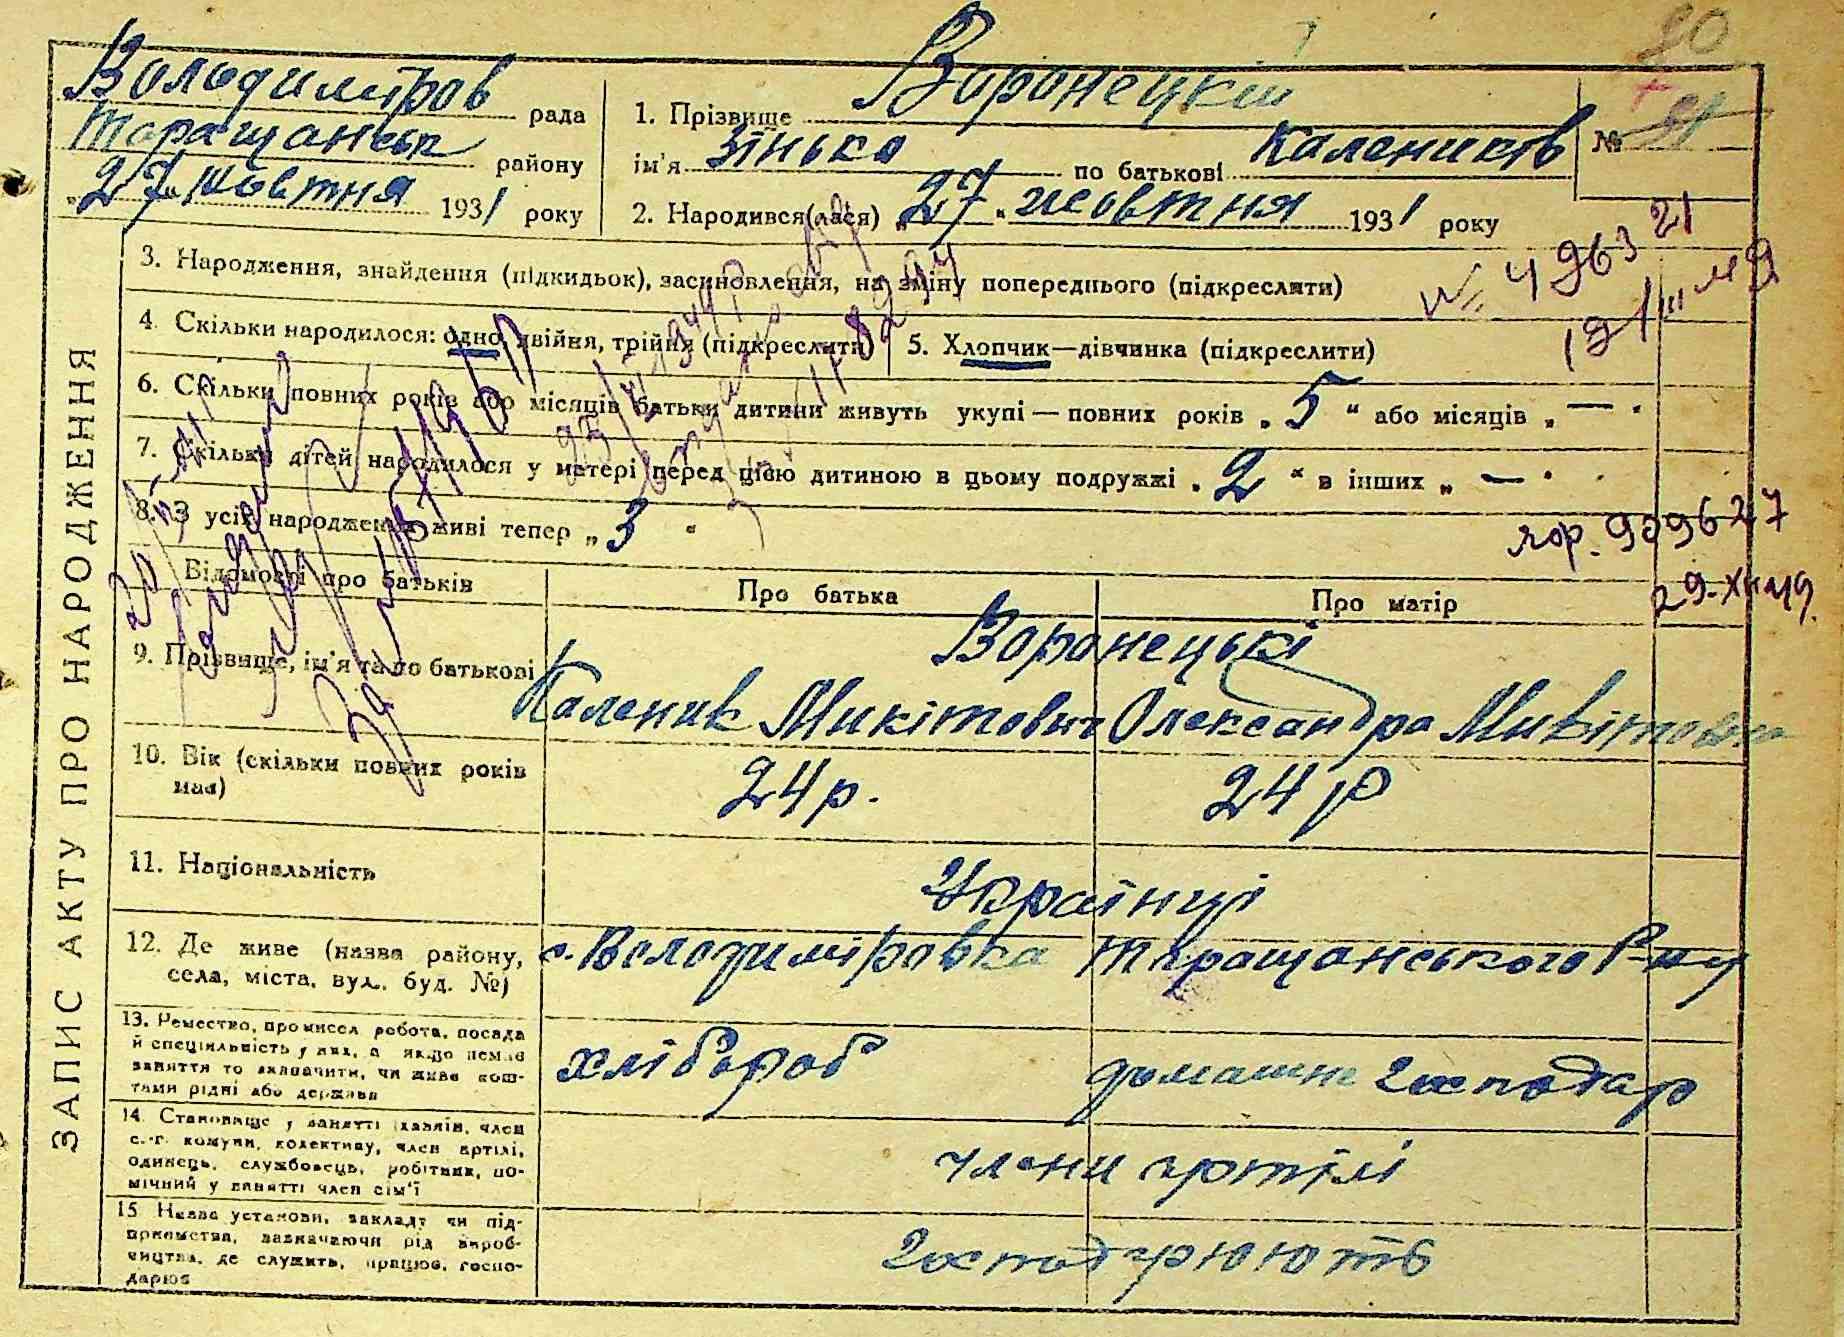 20
Володимиров рада
Таращанськ району
"27" жовтня 1931 року
1. Прізвище Воронецкій
ім'я Зінько по батькові Калеників
№ 91
2. Народився(лася) "27" жовтня 1931 року
3. Народження, знайдення (підкидьок), засиновлення, на зміну попереднього (підкреслити)
4. Скільки народилося: одно, двійня, трійня (підкреслити)
5. Хлопчик—дівчинка (підкреслити)
№ 4963
6. Скільки повних років або місяців батьки дитини живуть укупі — повних років „ 5 " або місяців „ — "
7. Скільки дітей народилося у матері перед цією дитиною в цьому подружжі „ 2 " в інших „ — "
8. З усіх народжених живі тепер „ 3 "
909627
29-XII-49.
ЗАПИС АКТУ ПРО НАРОДЖЕННЯ
Відомості про батьків
Про батька
Про матір
9. Прізвище, ім'я та по батькові
Воронецькі
Каленик Микітович Олександра Микітовна
10. Вік (скільки повних років має)
24 р.
24 р
11. Національність
Українці
12. Де живе (назва району, села, міста, вул., буд. №)
с. Володиміровка Таращанського Р-ну
13. Ремество, промисел робота, посада
й спеціяльність у них, а якщо немає
заняття то зазначити, чи живе кош-
тами рідні або держави
хлібороб
домашне господар
14. Становище у занятті (хазяїн, член
с.-г. комуни, колективу, член артілі,
одинець, службовець, робітник, по-
мічний у занятті член сім'ї
члени артілі
15. Назва установи, закладу чи під-
приємства, зазначаючи рід вироб-
ництва, де служить, працює, госпо-
дарює
господарюють